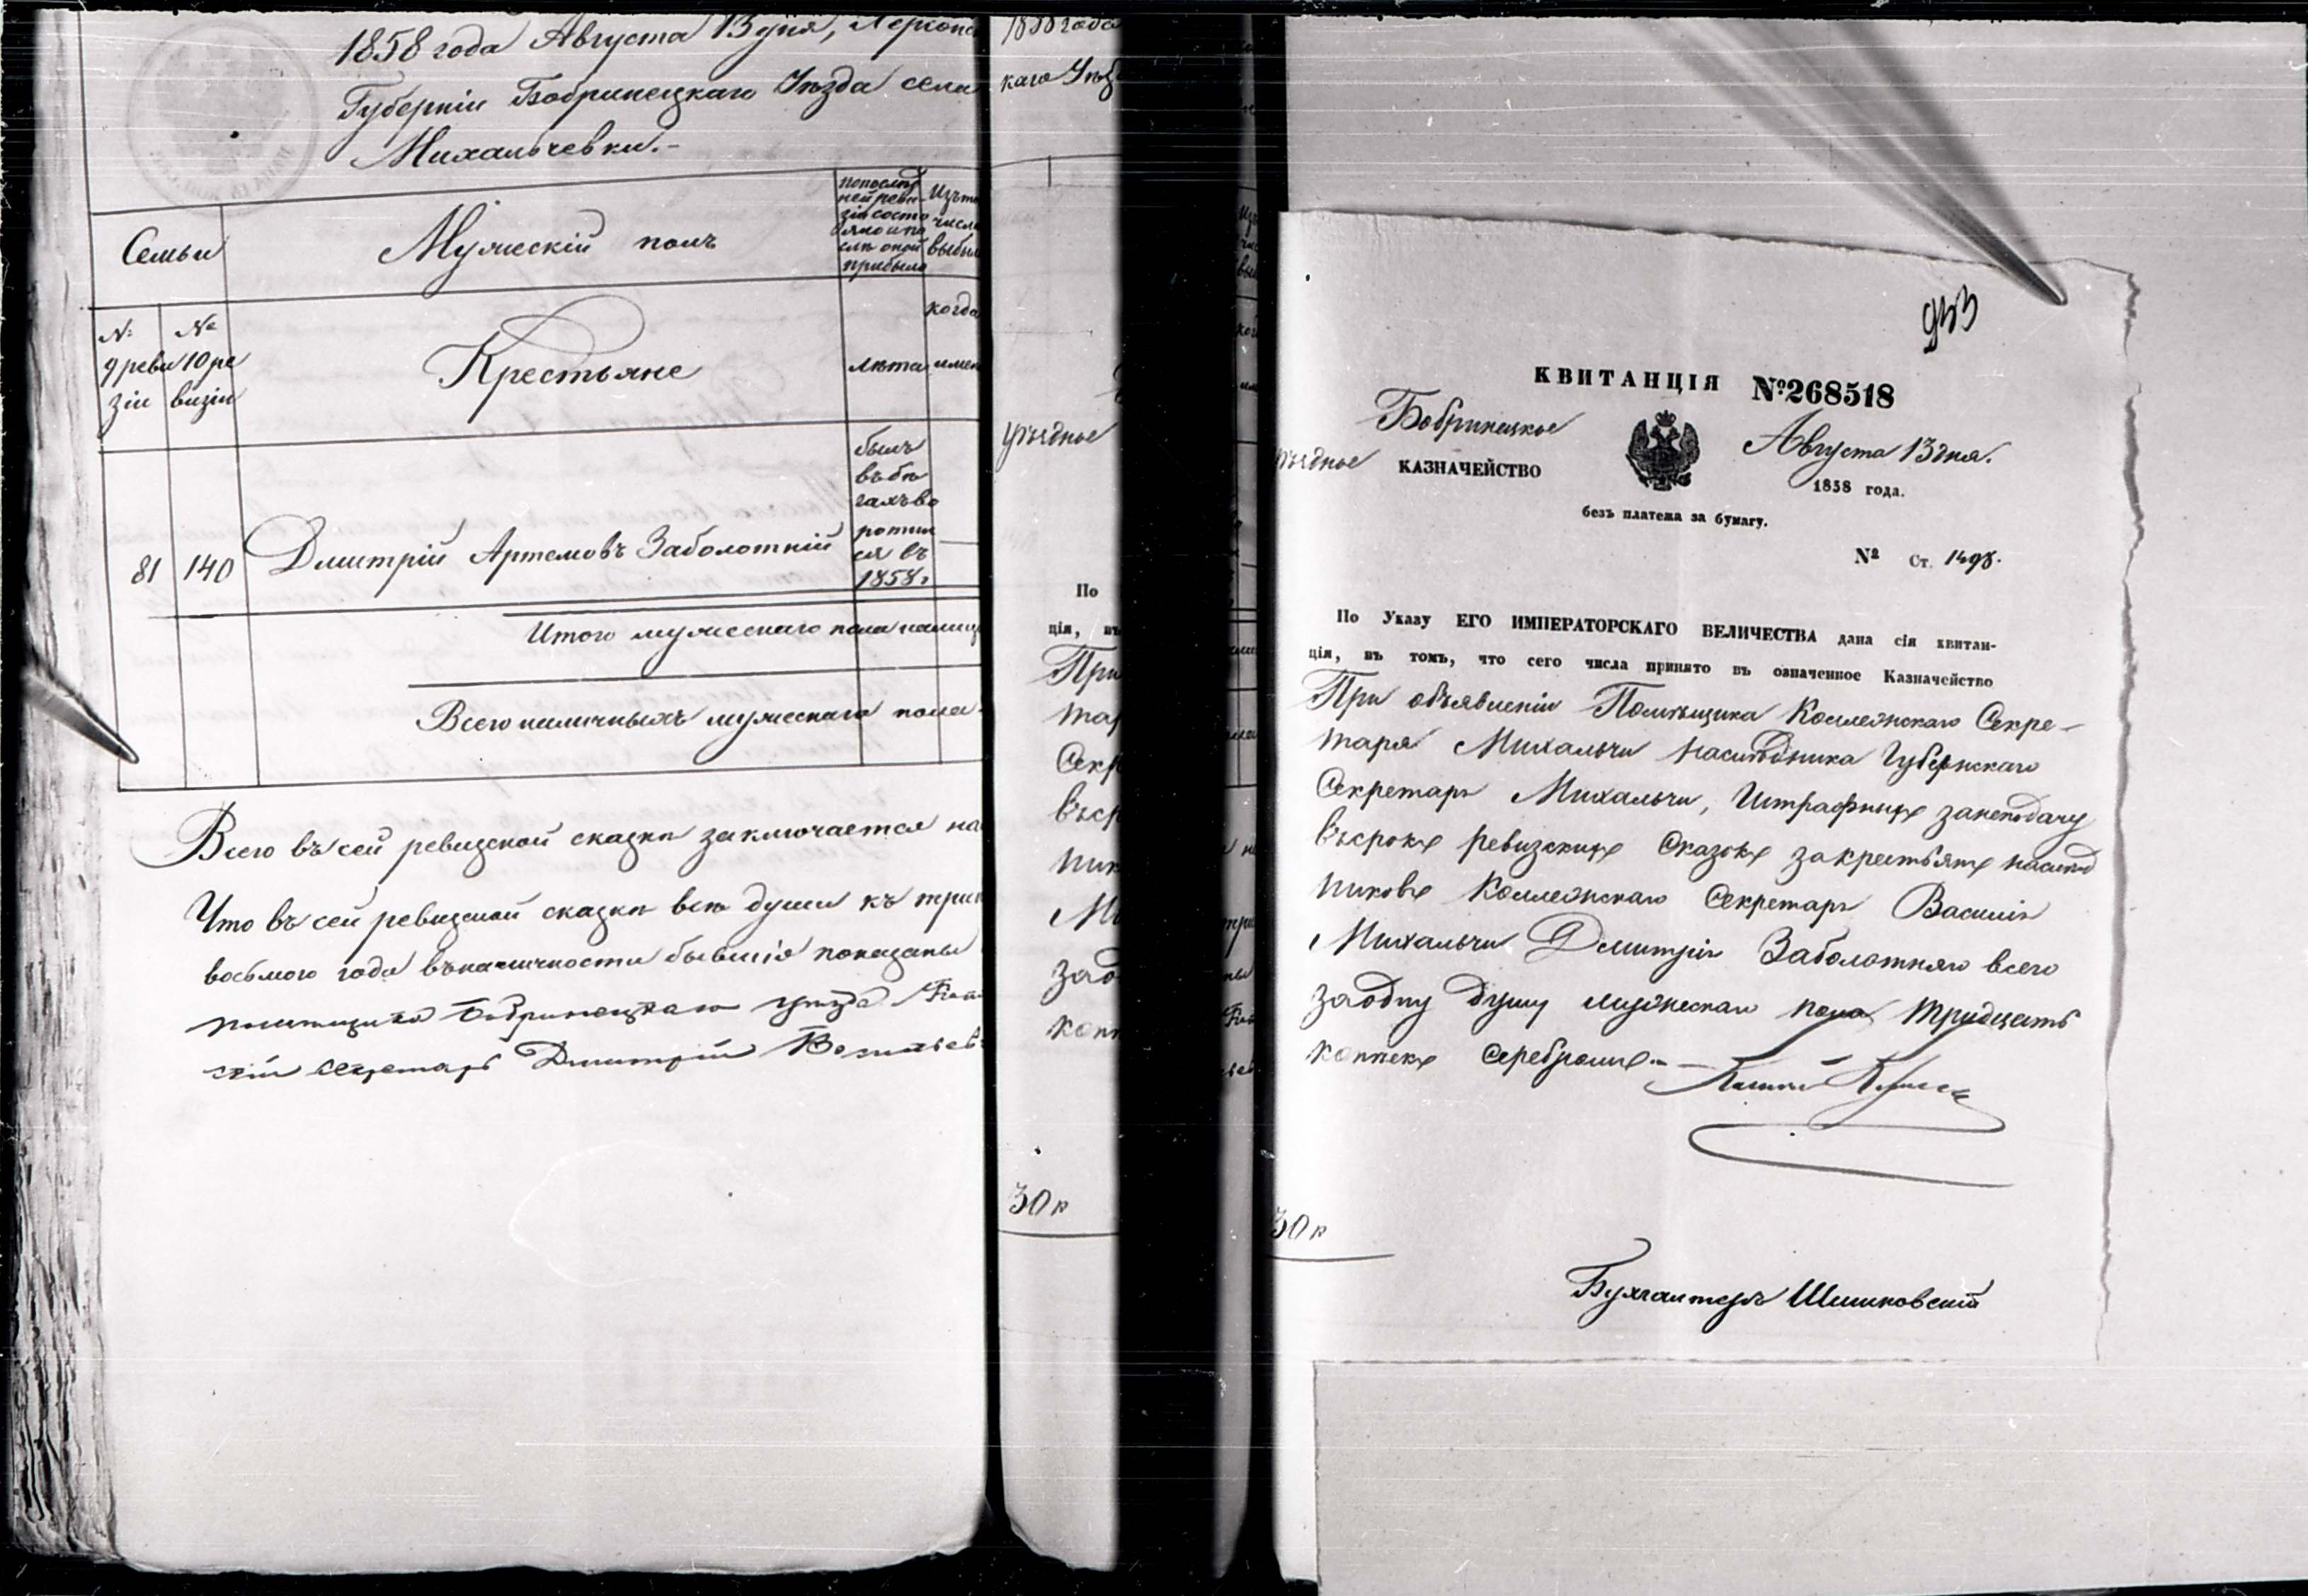 1858 года Августа 13 дня, Херсонс
Губерніи Бобринецкаго Уѣзда села
Михальчевки.-
Семьи
Мужескій полъ
по послѣд
ней реви-
зіи состо
яло и по
слѣ оной
прибыло
Изъ то
числа
выбыл
№ 9 реви зіи
№ 10 ре визіи
Крестьяне
лѣта
когда
имен
81
140
Дмитрій Артемовъ Заболотній
былъ
въ бѣ
гахъ во
ротил
ся въ
1858 г
Итого мужескаго пола налиц
Всего наличныхъ мужескаго пола
Всего въ сей ревизской сказкѣ заключается на
Что въ сей ревизской сказкѣ всѣ души къ три
восьмого года въ наличности бывшія показаны
помѣщика Бобринецкаго уѣзда
скій секретарь Дмитрій Васильев
1858 года
каго Уѣз
уѣздное
По
ція, въ
При
тар
Секр
въ ср
ник
Ми
за о
копѣ
30 к
953
КВИТАНЦІЯ №268518
Бобринецкое
уѣздное КАЗНАЧЕЙСТВО
Августа 13 дня.
1858 года.
безъ платежа за бумагу.
№ Ст. 1498.
По Указу ЕГО ИМПЕРАТОРСКАГО ВЕЛИЧЕСТВА дана сія квитан-
ція, въ томъ, что сего числа принято въ означенное Казначейство
При объявленіи Помѣщика Коллежскаго Секре-
таря Михальчи наслѣдника Губернскаго
Секретаря Михальчи, Штрафныхъ за неподачу
въ срокъ ревизскихъ Сказокъ за крестьянъ наслѣд
никовъ Коллежскаго Секретаря Василія
Михальчи Дмитрія Заболотняго всего
за одну душу мужескаго пола тридцать
копѣекъ серебромъ.-
30 к
Бухгалтеръ Шишковскій